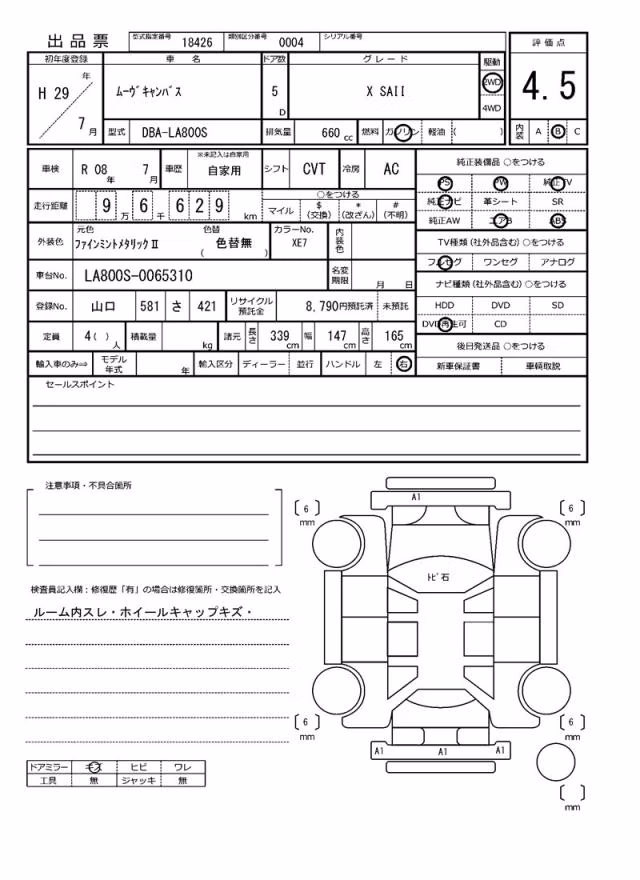 出品票 型式指定番号 18426 類別区分番号 0004 シリアル番号
評価点
4.5
内装 A B C
初年度登録 車名 ドア数 グレード 駆動
H 29 年 7 月 ムーヴキャンバス 5 D X SAII 2WD 4WD
型式 DBA-LA800S 排気量 660 cc 燃料 ガソリン 軽油 ( )
車検 R 08 年 7 月 車歴 ※未記入は自家用 自家用 シフト CVT 冷房 AC
走行距離 9 万 6 千 6 2 9 km ○をつける
マイル $(交換) *(改ざん) #(不明)
外装色 元色 ファインミントメタリックⅡ 色替 ( 色替無 ) カラーNo. XE7 内装色
車台No. LA800S-0065310 名変期限 月 日
登録No. 山口 581 さ 421 リサイクル預託金 8,790円預託済 未預託
定員 4( ) 人 積載量 kg 諸元 長さ 339 cm 幅 147 cm 高さ 165 cm
輸入車のみ⇒ モデル年式 年 輸入区分 ディーラー 並行 ハンドル 左 右
純正装備品 ○をつける
PS PW 純正TV
純正ナビ 革シート SR
純正AW エアB ABS
TV種類(社外品含む) ○をつける
フルセグ ワンセグ アナログ
ナビ種類(社外品含む) ○をつける
HDD DVD SD
DVD再生可 CD
後日発送品 ○をつける
新車保証書 車輌取説
セールスポイント
注意事項・不具合箇所
検査員記入欄：修復歴「有」の場合は修復箇所・交換箇所を記入
ルーム内スレ・ホイールキャップキズ・
ドアミラー キズ ヒビ ワレ
工具 無 ジャッキ 無
A1
[ 6 ] mm
[ 6 ] mm
トビ石
[ 6 ] mm
[ 6 ] mm
A1 A1 A1
[ ] mm